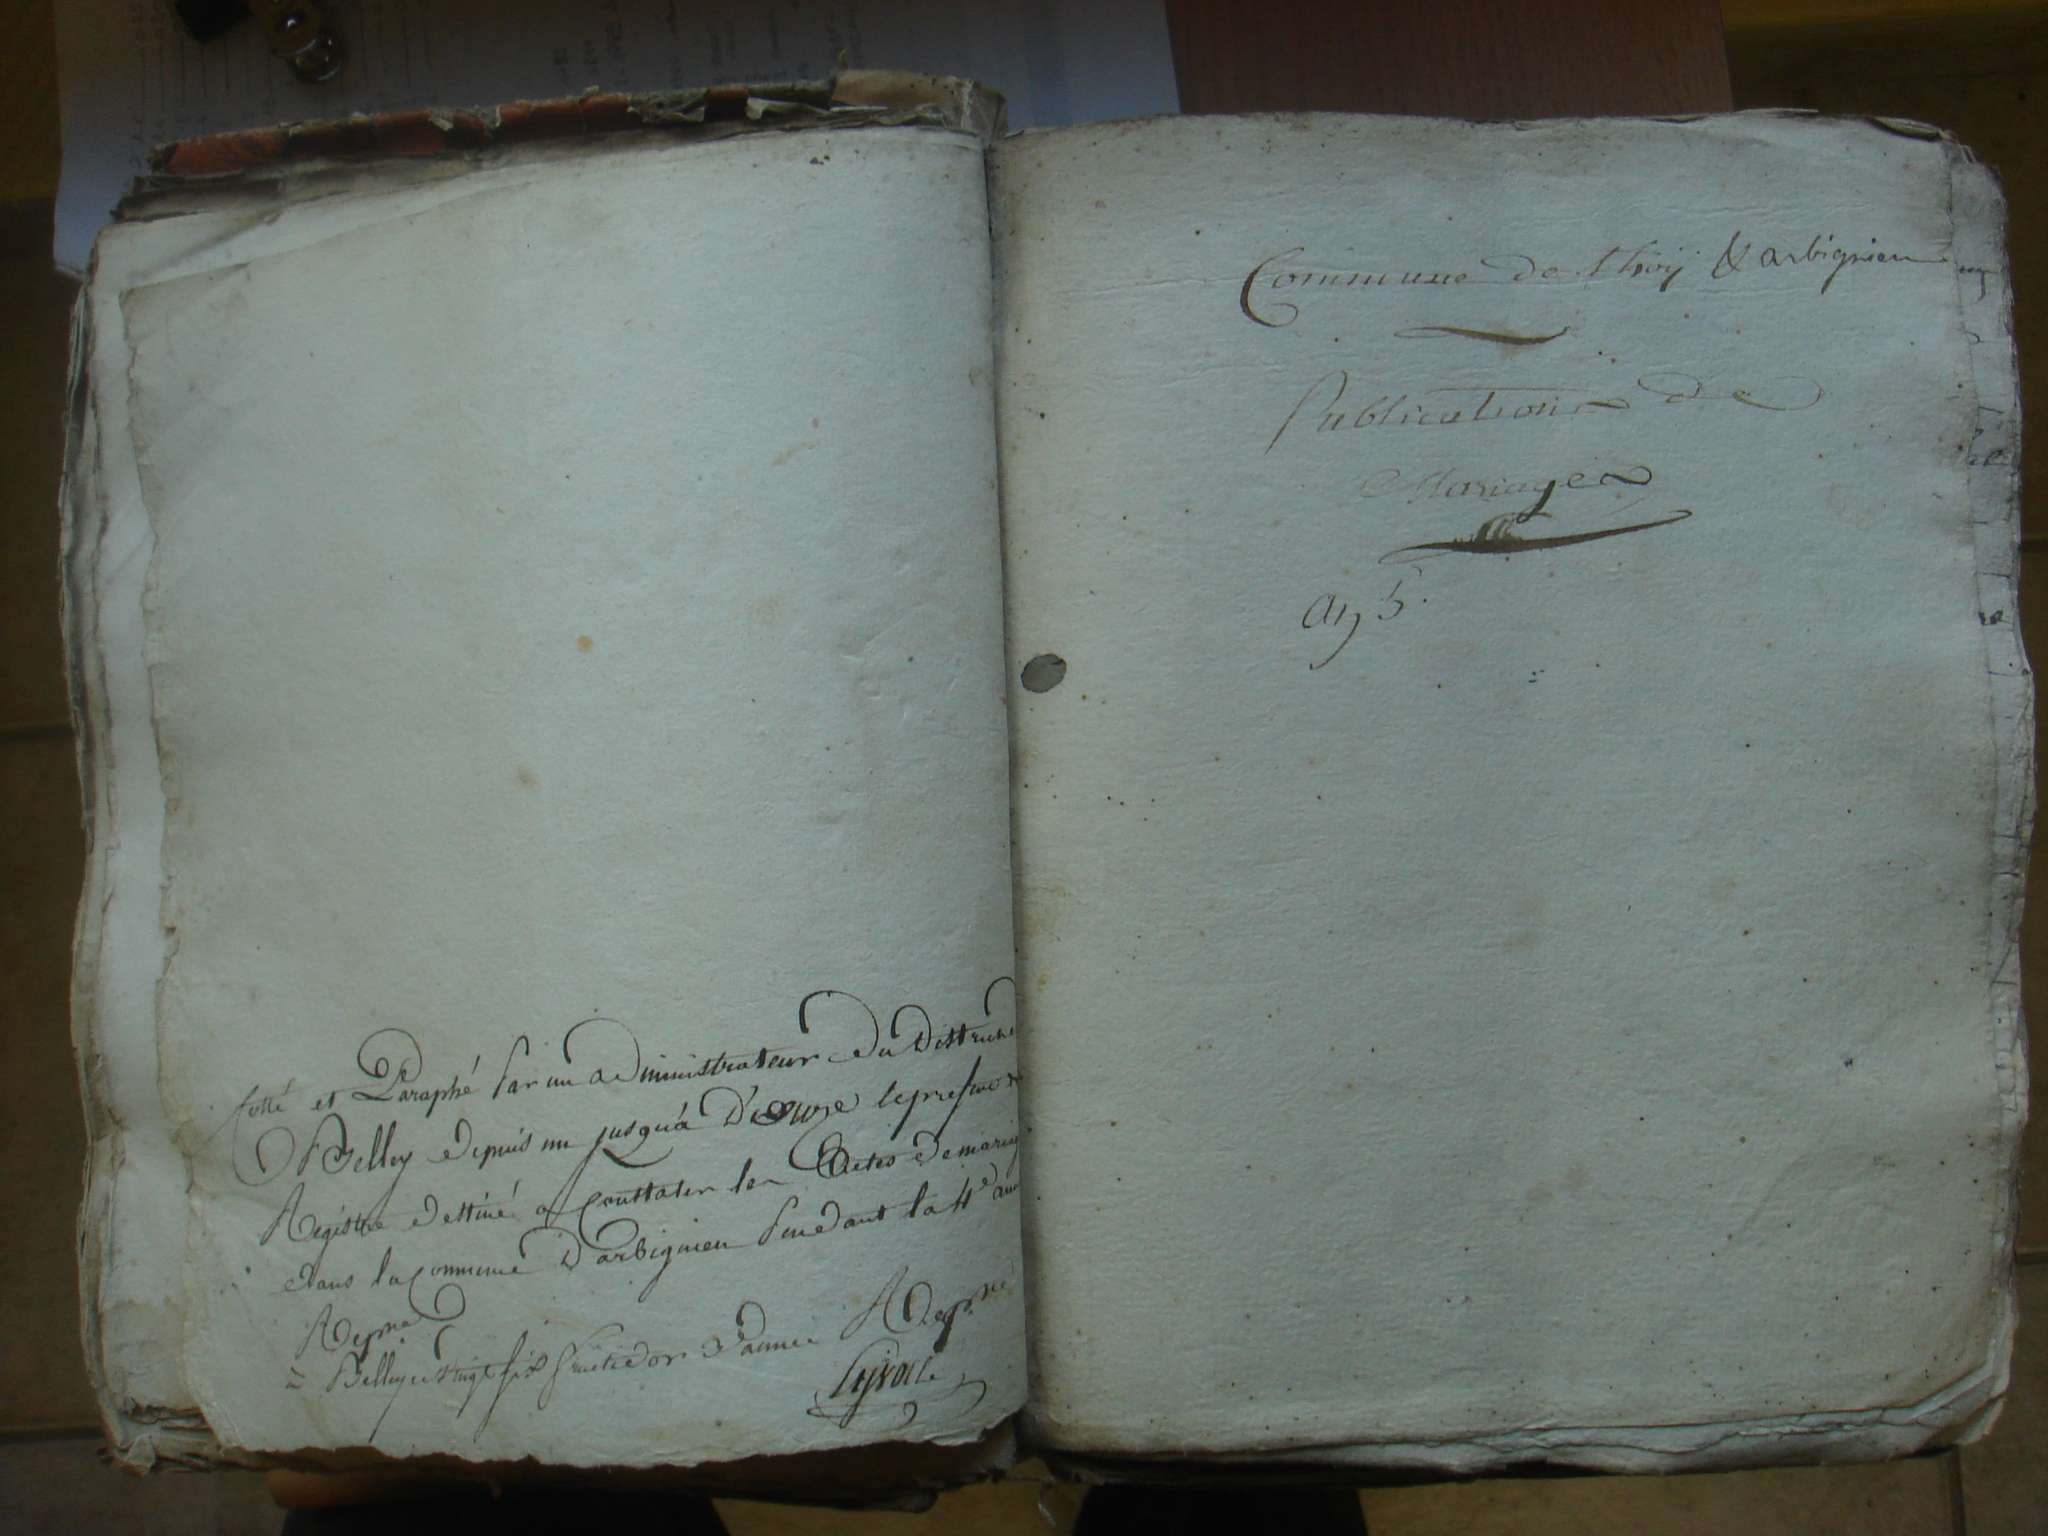 Cotté et Paraphé par un administrateur du District
Belley depuis un jusqu'à le present
Registre destiné a Constater les Actes de mariag
dans la Commune D'arbignieu pendant la 4e ann
Repne
à Belley ce vingt six fructidor D'année Repne
Commune de thoÿ & arbignieu
Publications de
Mariages
an 5.